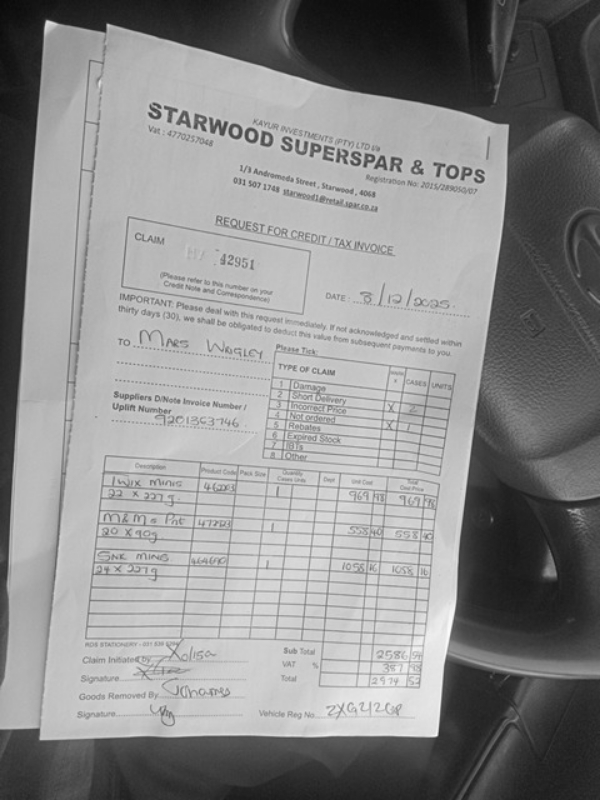 KAYUR INVESTMENTS (PTY) LTD t/a
STARWOOD SUPERSPAR & TOPS
Vat : 4770257048
Registration No: 2015/289050/07
1/3 Andromeda Street, Starwood, 4068
031 507 1748 starwood1@retail.spar.co.za
REQUEST FOR CREDIT / TAX INVOICE
CLAIM 42951
(Please refer to this number on your
Credit Note and Correspondence)
DATE: 3/12/2025.
IMPORTANT: Please deal with this request immediately. If not acknowledged and settled within
thirty days (30), we shall be obligated to deduct this value from subsequent payments to you.
TO MARS WRIGLEY
Please Tick:
TYPE OF CLAIM CASES UNITS
1 Damage
2 Short Delivery
3 Incorrect Price X 2
4 Not ordered
5 Rebates X 1
6 Expired Stock
7 IBTs
8 Other
Suppliers D/Note Invoice Number /
Uplift Number
9201363746
Description Product Code Pack Size Quantity Cases Units Dept Unit Cost Total Cost Price
TWIX MINIS 1 969 98 969 98
22 X 227g.
M&Ms Pnt 1 558 40 558 40
20 X 90g
SNK MINIS 464690 1 1058 16 1058 16
24 X 227g
RDS STATIONERY - 031
Sub Total 2586 54
VAT % 387 98
Total 2974 52
Claim Initiated by Xolisa
Signature
Goods Removed By
Signature
Vehicle Reg No ZXG212GP